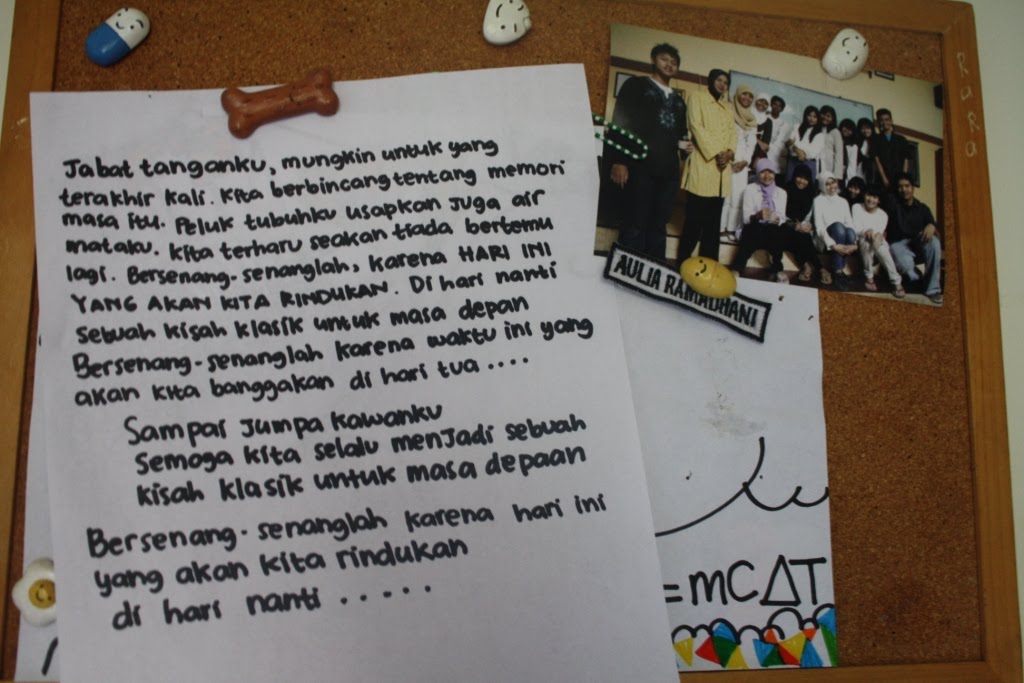 Jabat tanganku, mungkin untuk yang
terakhir kali. Kita berbincang tentang memori
masa itu. Peluk tubuhku usapkan juga air
mataku. Kita terharu seakan tiada bertemu
lagi. Bersenang-senanglah, karena HARI INI
YANG AKAN KITA RINDUKAN. Di hari nanti
sebuah kisah klasik untuk masa depan
Bersenang-senanglah karena waktu ini yang
akan kita banggakan di hari tua....
Sampai jumpa kawanku
Semoga kita selalu menjadi sebuah
kisah klasik untuk masa depaan
Bersenang-senanglah karena hari ini
yang akan kita rindukan
di hari nanti.....
AULIA RAMADHANI
=mCΔT
RaRa